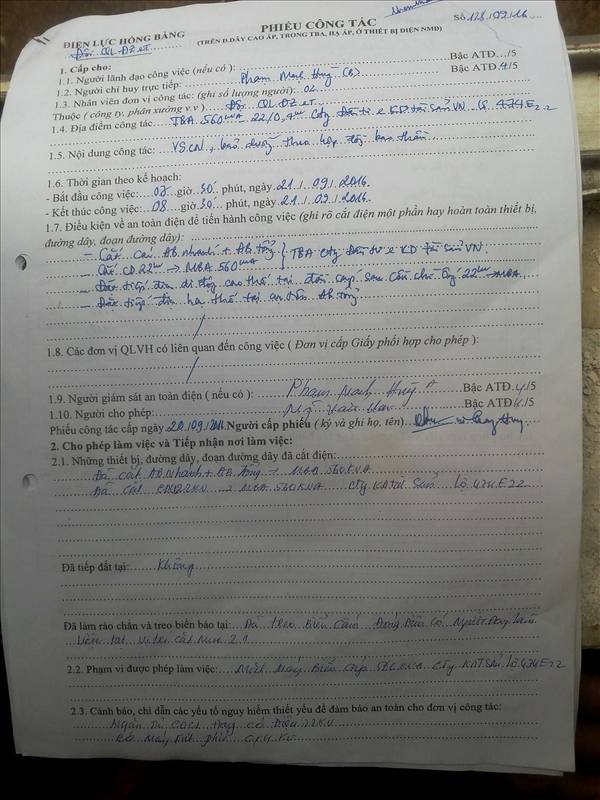 ĐIỆN LỰC HỒNG BÀNG
Đội QLĐZ et
PHIẾU CÔNG TÁC
Số 128/09/16
(TRÊN Đ.DÂY CAO ÁP, TRONG TBA, HẠ ÁP, Ở THIẾT BỊ ĐIỆN NMĐ)
1. Cấp cho:
1.1. Người lãnh đạo công việc (nếu có): Bậc ATĐ.../5
1.2. Người chỉ huy trực tiếp: Phạm Mạnh Huỳ (B) Bậc ATĐ.4/5
1.3. Nhân viên đơn vị công tác: (ghi số lượng người): 02
Thuộc (công ty, phân xưởng v.v): Đội QLĐZ et
1.4. Địa điểm công tác: TBA 560 KVA 22/0,4 KV Cty Đầu tư & KD tài sản VN lộ 474E2.2
1.5. Nội dung công tác: VSCN, bảo dưỡng theo hợp đồng
1.6. Thời gian theo kế hoạch:
- Bắt đầu công việc: 07 giờ 30 phút, ngày 21/09/2016.
- Kết thúc công việc: 08 giờ 30 phút, ngày 21/09/2016.
1.7. Điều kiện về an toàn điện để tiến hành công việc (ghi rõ cắt điện một phần hay hoàn toàn thiết bị,
đường dây, đoạn đường dây):
- Cắt các AB nhánh + AB tổng } TBA Cty Đầu tư & KD tài sản VN
- Cắt CD 22 KV → MBA 560 KVA
- Đặt tiếp địa di động cao thế tại đầu cáp sau cầu chì ống 22 KV → MBA
- Đặt tiếp địa hạ thế tại AB tổng
1.8. Các đơn vị QLVH có liên quan đến công việc (Đơn vị cấp Giấy phối hợp cho phép):
1.9. Người giám sát an toàn điện (nếu có): Phạm Mạnh Huỳ A Bậc ATĐ.4/5
1.10. Người cho phép: Bậc ATĐ 4/5
Phiếu công tác cấp ngày 20/09/2016 Người cấp phiếu (ký và ghi họ, tên)
2. Cho phép làm việc và Tiếp nhận nơi làm việc:
2.1. Những thiết bị, đường dây, đoạn đường dây đã cắt điện:
Đã cắt AB Nhánh + AB tổng → MBA 560KVA
Đã cắt CD 22KV → MBA 560KVA Cty KD tài Sản lộ 474E22
Đã tiếp đất tại: Không
Đã làm rào chắn và treo biển báo tại: Đã treo biển Cấm Đóng Điện Có Người Đang Làm
Việc tại Vị trí cắt Mục 2.1
2.2. Phạm vi được phép làm việc: Máy Biến Áp 560KVA Cty KDTSản lộ 474E22
2.3. Cảnh báo, chỉ dẫn các yếu tố nguy hiểm thiết yếu để đảm bảo an toàn cho đơn vị công tác:
Có Điện 22KV